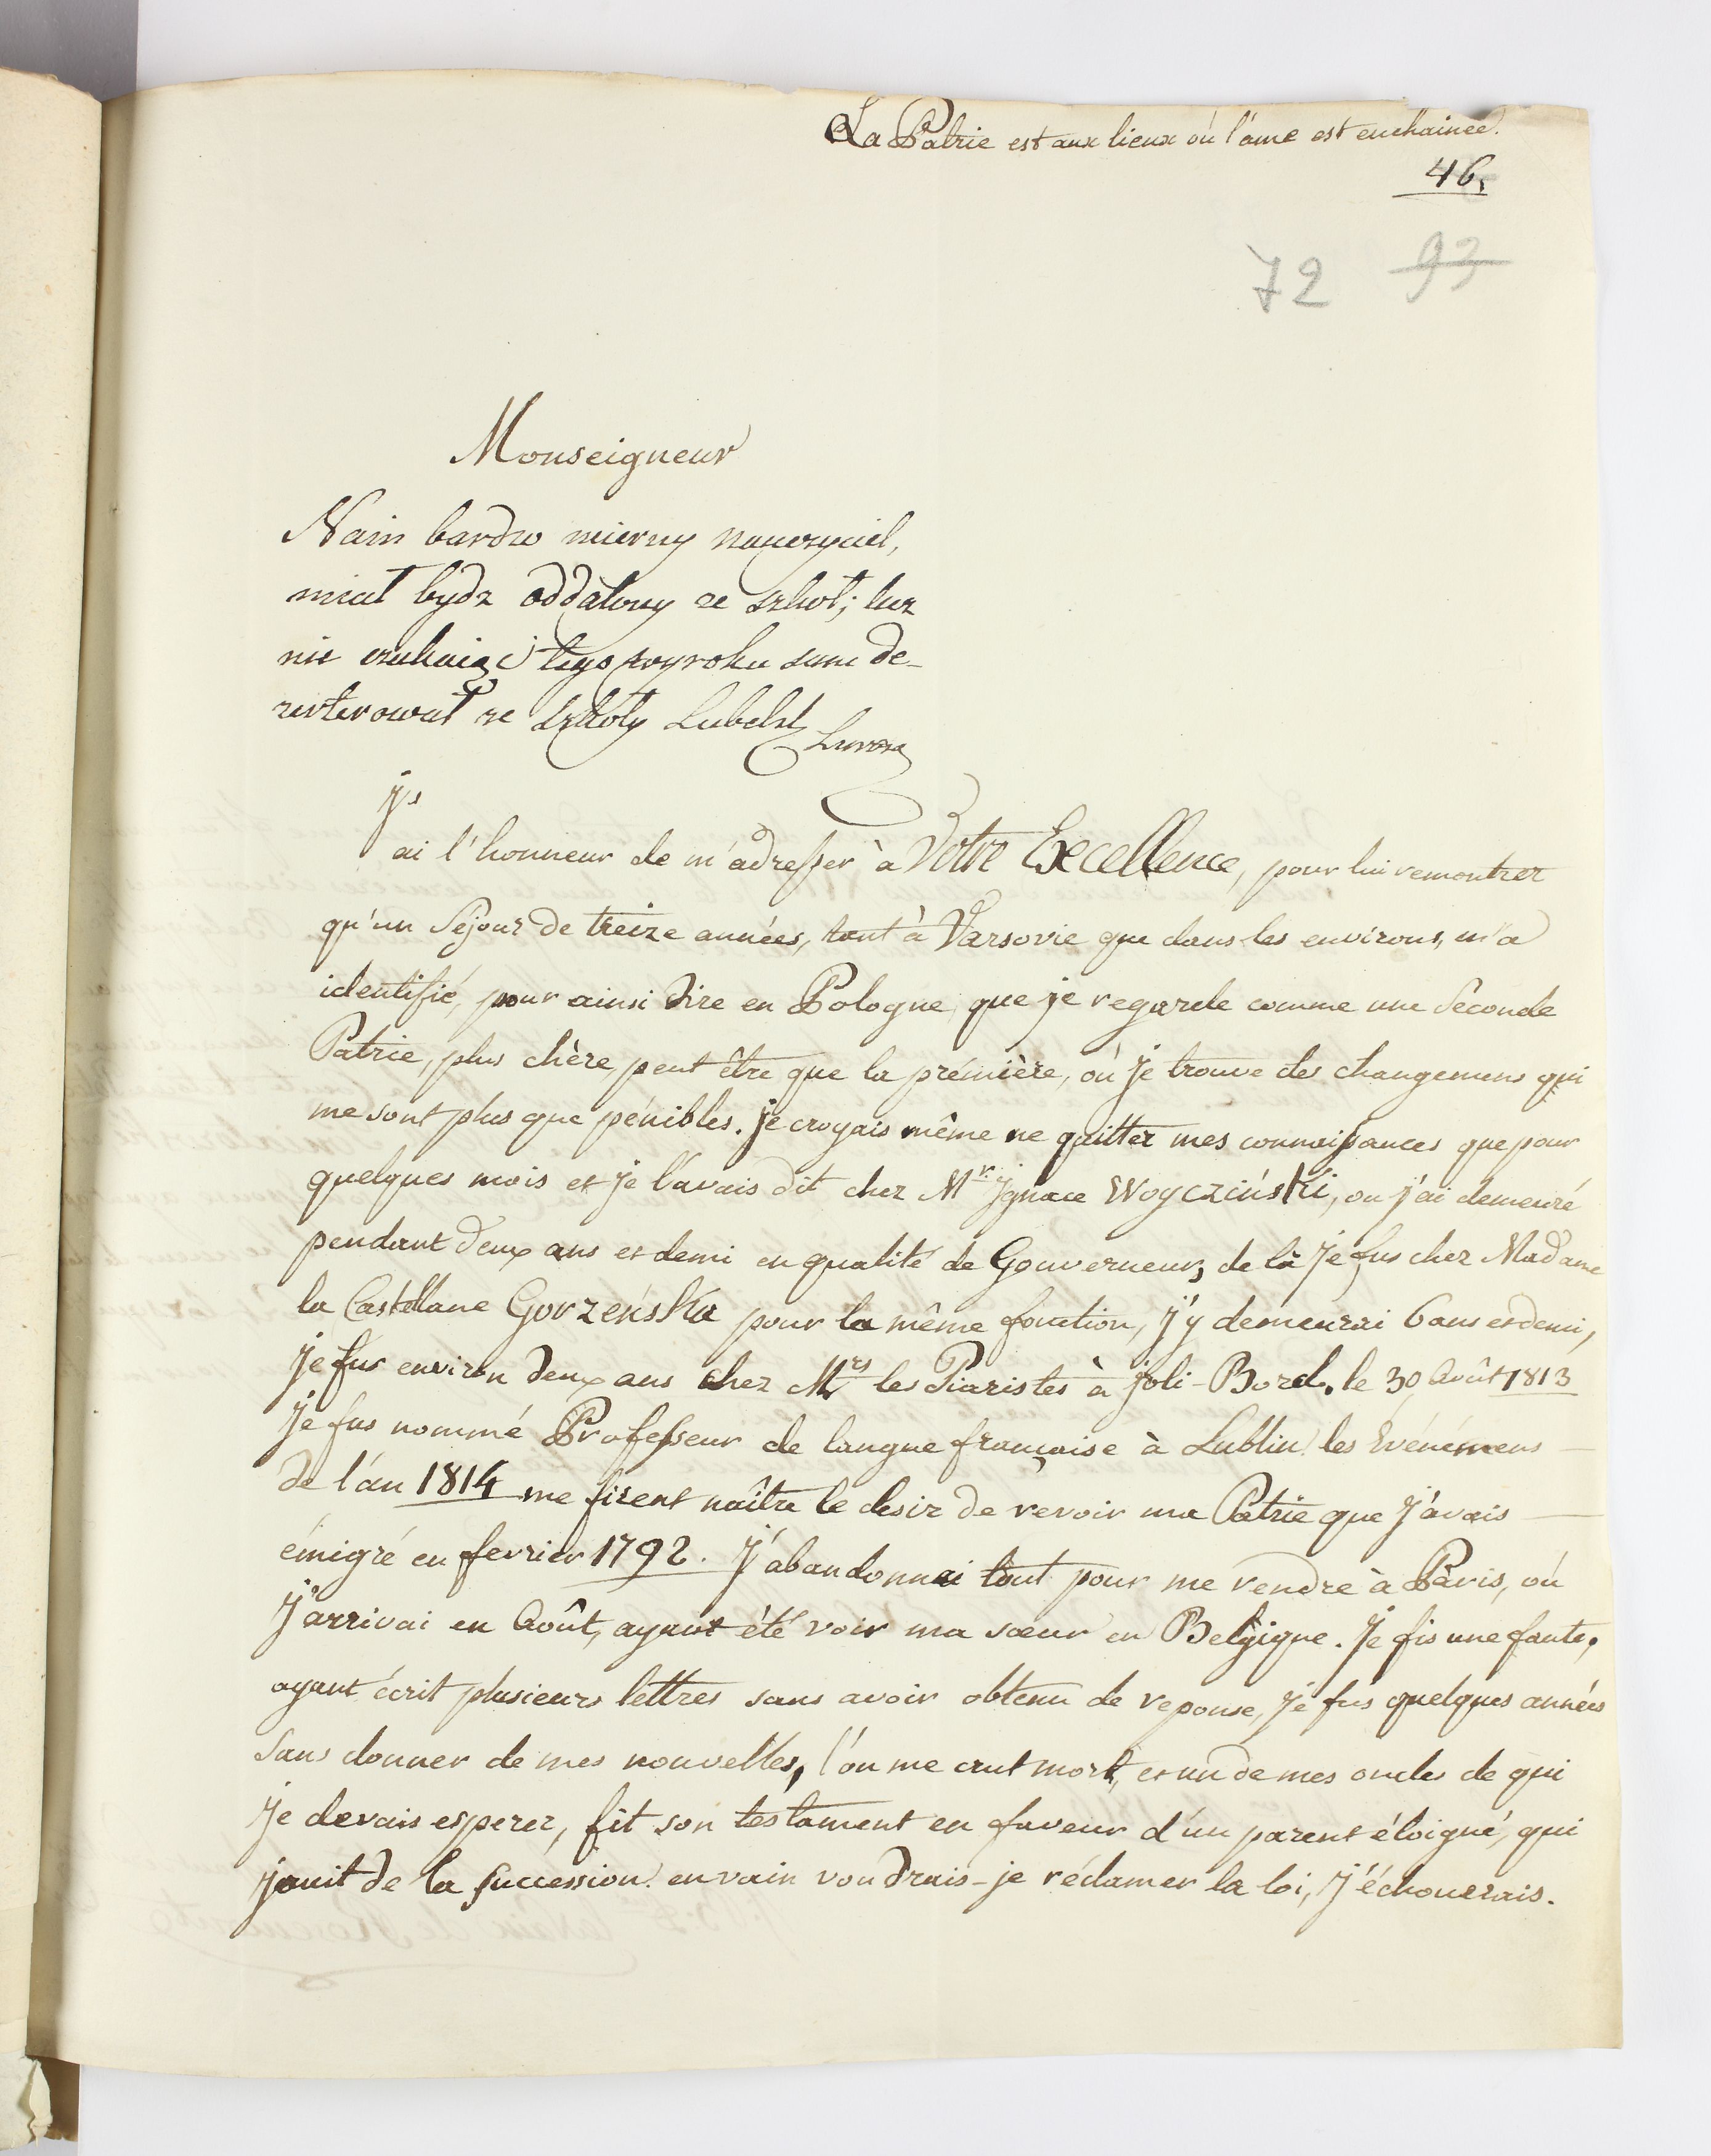 La Patrie est aux lieux où l'ame est enchainée.
46.
72 93
Monseigneur
Nain bardzo mierny nauczyciel,
miał bydz oddalony ze szkół; lecz
nie czekaiąc tego wyroku sam de-
zerterował ze szkoły Lubelsk
J'
ai l'honneur de m'adresser à Votre Excellence, pour lui remontrer
qu'un Séjour de treize années, tant à Varsovie que dans les environs, m'a
identifié, pour ainsi dire en Pologne, que je regarde comme une Seconde
Patrie, plus chère, peut être que la prémière, où je trouve des changemens qui
me sont plus que pénibles. je croyais même ne quitter mes connoissances que pour
quelques mois et je l'avais dit chez Mr. Jgnace Woyczinski, ou j'ai demeuré
pendant deux ans et demi en qualité de Gouverneur, de là je fus chez Madame
la Castellane Gorzeńska pour la même fonction, j'y demeurai 6 ans et demi,
je fus environ deux ans chez Mrs les Piaristes à joli-Bord. le 30 Août 1813
je fus nommé Professeur de langue française à Lublin. les Evénémens
de l'an 1814 me firent naître le desir de revoir ma Patrie que j'avais
émigré en fevrier 1792. J'abandonnai tout pour me rendre à Paris, où
j'arrivai en Août, ayant été voir ma sœur en Belgique. Je fis une faute,
ayant écrit plusieurs lettres sans avoir obtenu de reponse, je fus quelques années
sans donner de mes nouvelles, l'on me crut mort, et un de mes oncles de qui
je devais esperer, fit son testament en faveur d'un parent éloigné, qui
jouit de la succession. en vain voudrais-je réclamer la loi, j'échouerais.